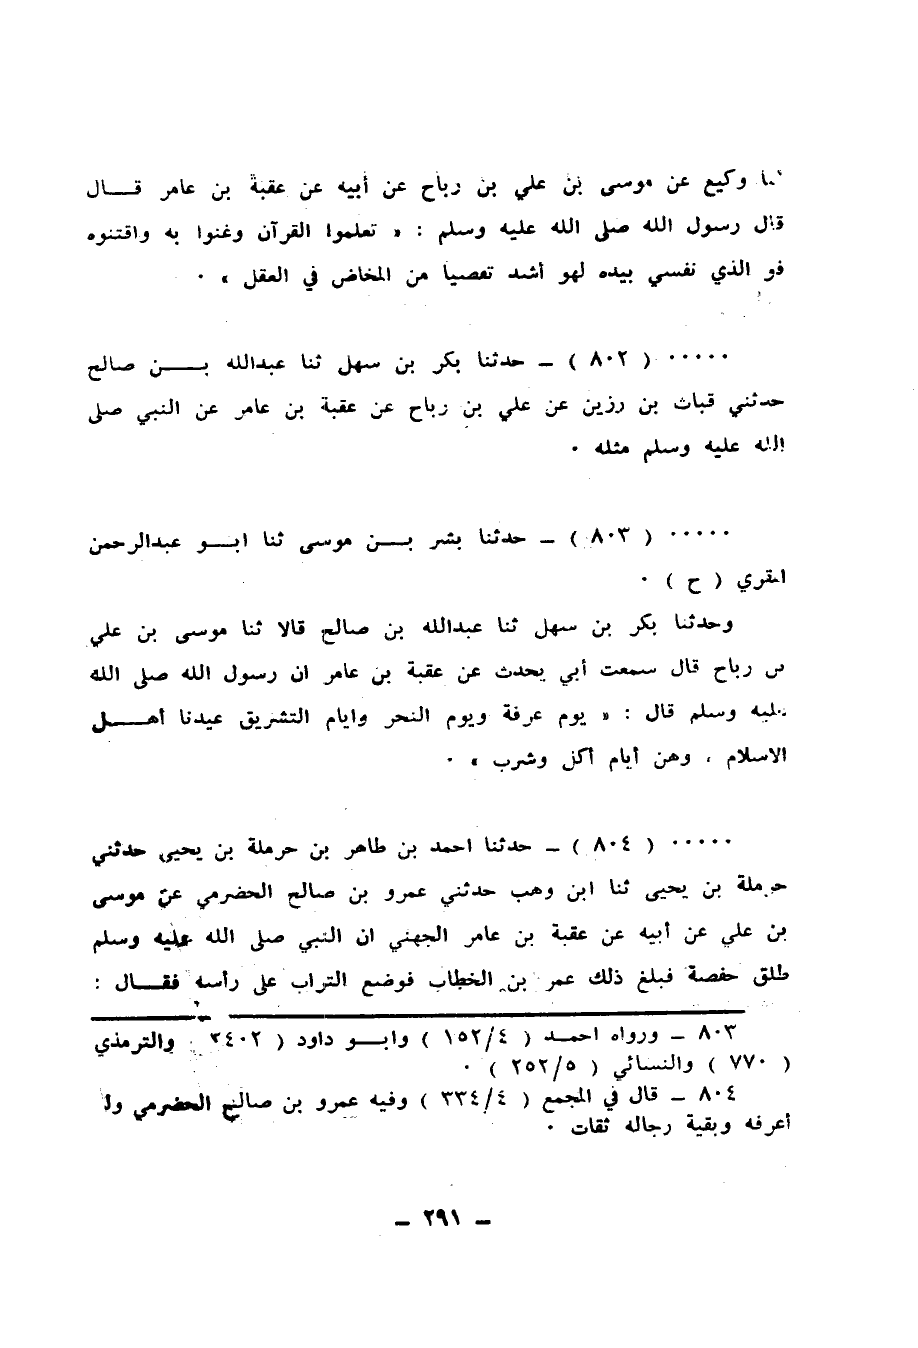 ثنا وكيع عن موسى بن علي بن رباح عن أبيه عن عقبة بن عامر قـــال
قال رسول الله صلى الله عليه وسلم : « تعلموا القرآن وغنوا به واقتنوه
فو الذي نفسي بيده لهو أشد تفصيا من المخاض في العقل » ٠
٠٠٠٠٠ ( ٨٠٢ ) ـ حدثنا بكر بن سهل ثنا عبدالله بـــــن صالح
حدثني قباث بن رزين عن علي بن رباح عن عقبة بن عامر عن النبي صلى
الله عليه وسلم مثله ٠
٠٠٠٠٠ ( ٨٠٣ ) ـ حدثنا بشر بـــن موسى ثنا ابـــو عبدالرحمن
المقري ( ح ) ٠
وحدثنا بكر بن سهل ثنا عبدالله بن صالح قالا ثنا موسى بن علي
بن رباح قال سمعت أبي يحدث عن عقبة بن عامر ان رسول الله صلى الله
عليه وسلم قال : « يوم عرفة ويوم النحر وايام التشريق عيدنا أهــــل
الاسلام ، وهن أيام أكل وشرب » ٠
٠٠٠٠٠ ( ٨٠٤ ) ـ حدثنا احمد بن طاهر بن حرملة بن يحيى حدثني
حرملة بن يحيى ثنا ابن وهب حدثني عمرو بن صالح الحضرمي عن موسى
بن علي عن أبيه عن عقبة بن عامر الجهني ان النبي صلى الله عليه وسلم
طلق حفصة فبلغ ذلك عمر بن الخطاب فوضع التراب على رأسه فقـــال :
٨٠٣ ـ ورواه احمـد ( ٤/١٥٢ ) وابـــو داود ( ٢٤٠٢ والترمذي
( ٧٧٠ ) والنسائي ( ٥/٢٥٢ ) ٠
٨٠٤ ـ قال في المجمع ( ٤/٣٣٤ ) وفيه عمرو بن صالح الحضرمي ولم
أعرفه وبقية رجاله ثقات ٠
ـ ٢٩١ ـ